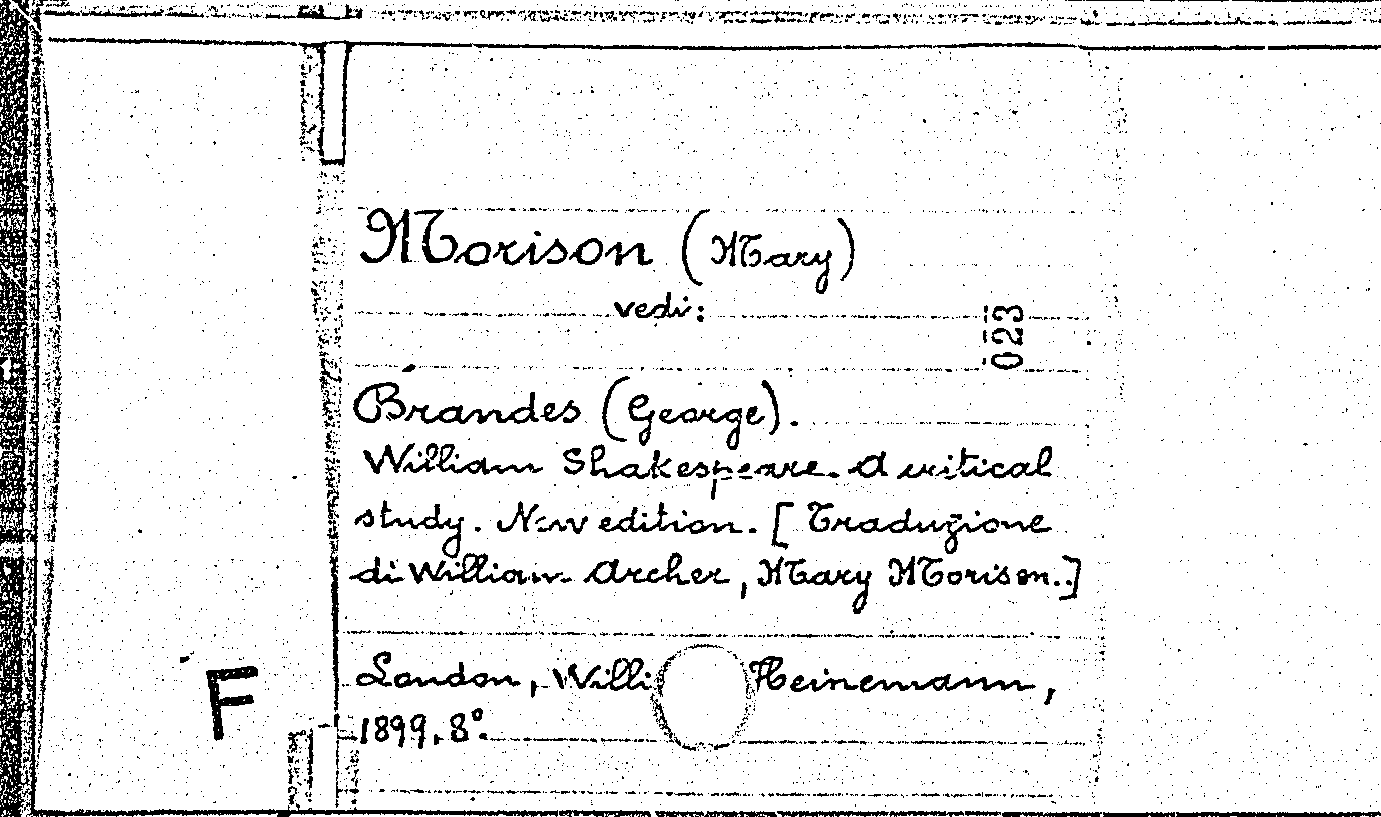 Morison (Mary)
vedi:
023
Brandes (George).
William Shakespeare. A critical
study. New edition. [Traduzione
di William Archer, Mary Morison.]
London, Willi Heinemann,
1899, 8°.
F